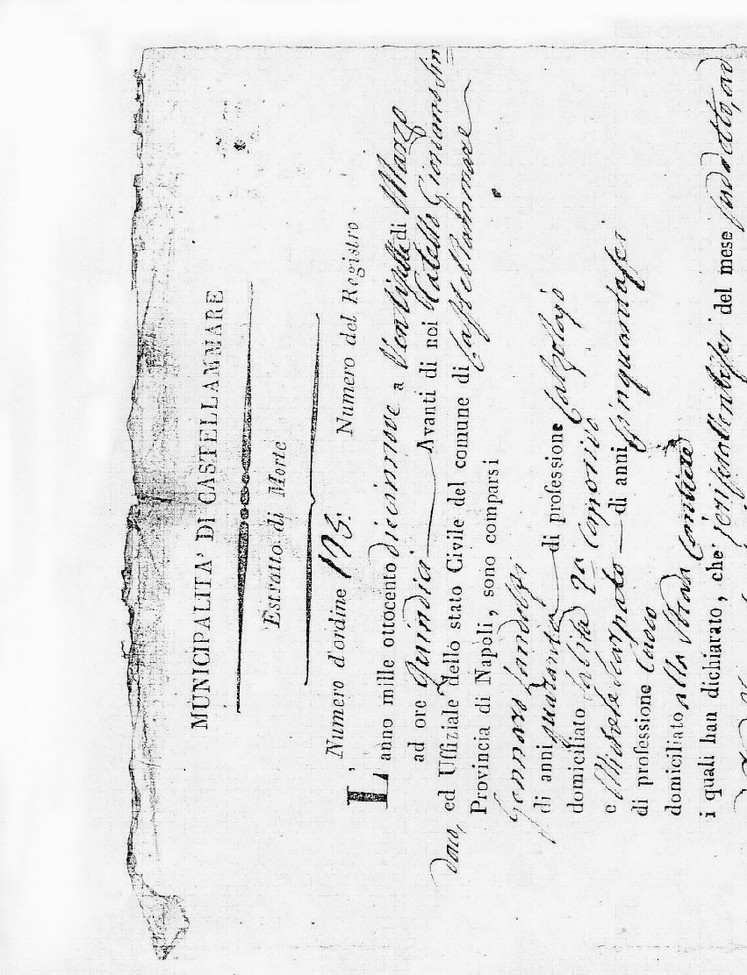 MUNICIPALITA' DI CASTELLAMMARE
Estratto di Morte
Numero d'ordine 173. Numero del Registro
L'anno mille ottocento diecinnove a Ventisette di Marzo
ad ore quindici Avanti di noi Catello Girolamo Sin
daco, ed Uffiziale dello stato Civile del comune di Castellammare
Provincia di Napoli, sono comparsi
Gennaro Landolfi
di anni quaranta di professione Calzolajo
domiciliato salita 2a
e Michele Scarpato di anni cinquantasei
di professione Cuoco
domiciliato alla Strada Cantiere
i quali han dichiarato, che' jeri sei del mese sudetto, ad